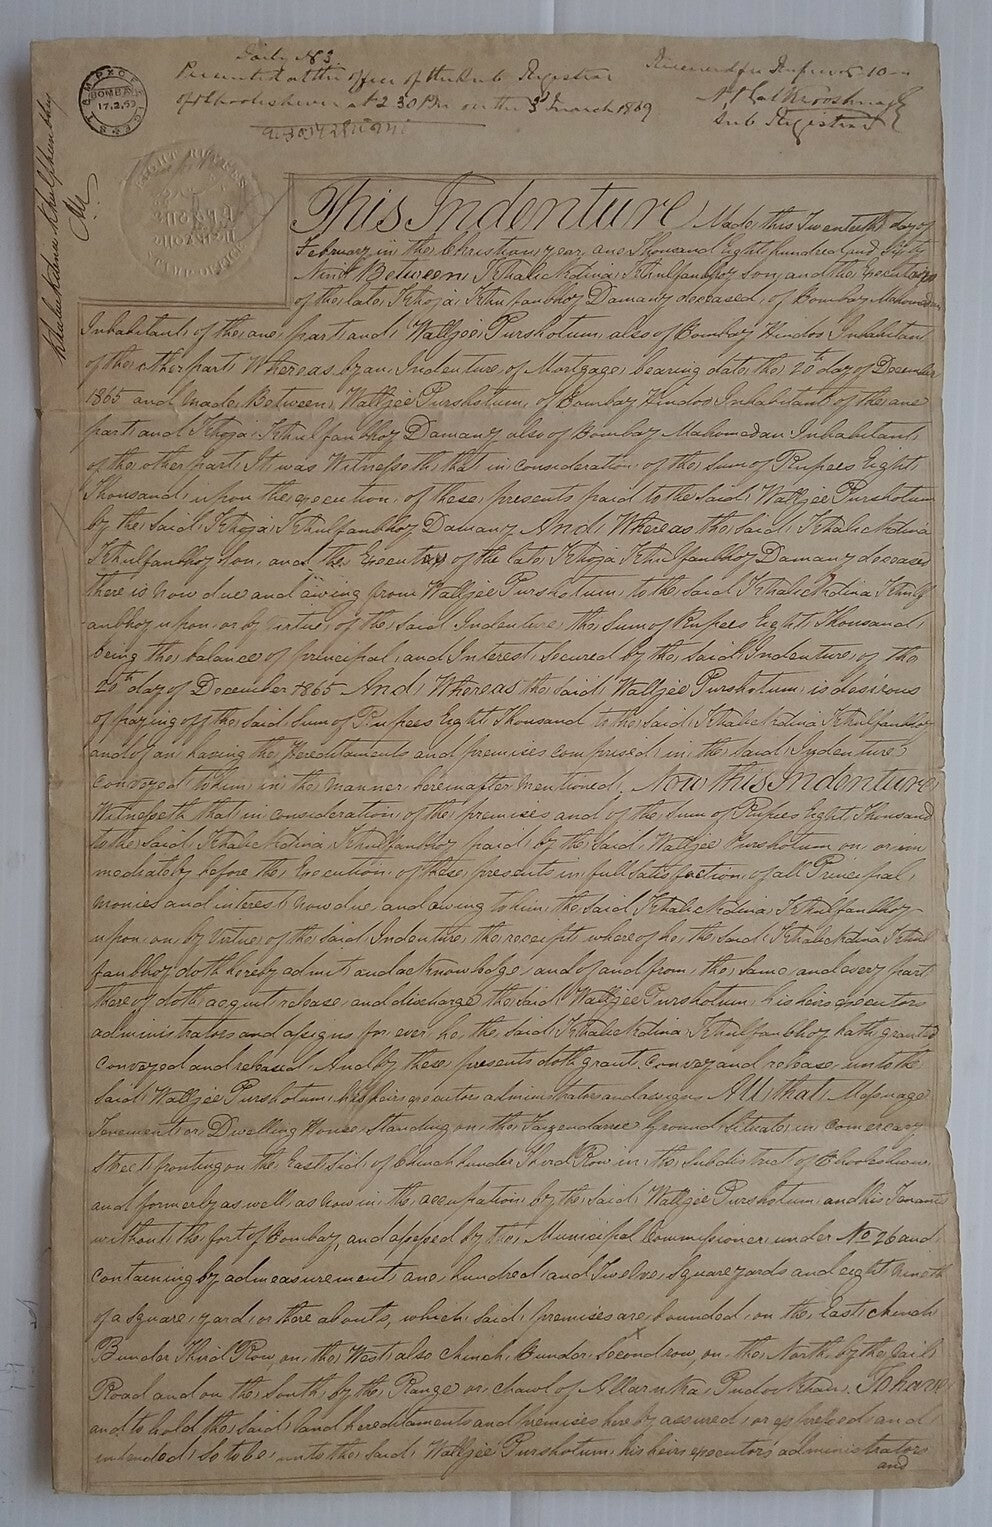 Presented at the office of the Sub Registrar
at 2.30 PM on the 3 March 1869
Sub Registrar
BOMBAY
17.2.69
This Indenture Made this Twentieth day of
February in the Christian year one Thousand Eight hundred and Sixty
Nine Between Khalickdina Khulfanbhoy son, and the Executor
of the late Khoja Khulfanbhoy Damany deceased, of Bombay Mahomedan
Inhabitant, of the one part and Walljee Purshotum, also of Bombay Hindoo Inhabitant
of the other part Whereas by an Indenture, of Mortgage, bearing date, the 20th day of December
1865 and Made, Between, Walljee Pursholum, of Bombay Hindoo Inhabitant of the one
part and Khoja Khulfanbhoy Damany also of Bombay Mahomedan Inhabitant
of the other part It was Witnesseth, that in consideration, of the Sum of Rupees Eight
Thousand, upon the execution, of these, presents paid to the Said Walljee Pursholum
by the Said Khoja Khulfanbhoy Damany And Whereas the Said Khalickdina
Khulfanbhoy son, and the Executor of the late Khoja Khulfanbhoy Damany deceased
there is now due and owing from Walljee Pursholum, to the Said Khalickdina Khulf
anbhoy upon, or by virtue, of the Said Indenture, the Sum of Rupees Eight Thousand,
being the balance of principal, and Interest, Secured by the Said Indenture, of the
20th day of December 1865 And Whereas the Said Walljee Pursholum, is desirous
of paying off the Said Sum of Rupees Eight Thousand to the Said Khalickdina Khulfanbhoy
and of an having the Hereditaments and premises comprised, in the Said Indenture
conveyed to him, in the manner hereinafter mentioned. Now this Indenture
Witnesseth that in consideration of the premises and of the Sum of Rupees Eight Thousand
to the Said Khalickdina Khulfanbhoy paid, by the Said Walljee Pursholum on or im
mediately before the Execution, of these, presents in full Satisfaction, of all Principal,
monies and interest now due, and owing to him, the Said Khalickdina Khulfanbhoy
upon, or, by Virtue, of the Said Indenture, the receipt whereof he, the Said Khalickdina Khul
fanbhoy doth hereby admit and acknowledge, and of and from, the Same, and every part
thereof doth acquit release, and discharge, the Said Walljee Pursholum, his heirs executors
administrators and assigns for ever he, the Said Khalickdina Khulfanbhoy hath granted
conveyed and released And by these, presents doth grant, convey and release unto the
Said Walljee Pursholum, his heirs executors administrators and assigns All that, Messuage
Tenement or Dwelling House, Standing on, the Fazendaree Ground, Situate, in
Street, fronting on the East Side of Chinch bunder Third Row in, the Subdistrict of
and formerly as well, as now in, the occupation, by the Said, Walljee Pursholum, and his Tenants
without the fort of Bombay, and assessed by the, Municipal Commissioner under No 26 and
containing by admeasurement, one, hundred, and Twelve, Square yards and eight
of a Square, yard, or there abouts, which Said, premises are, bounded, on the, East, Chinch
Bunder Third Row, on, the West, also Chinch Bunder Second row, on, the, North, by the Jail
Road and on the South, by the Range or, chawl of To have
and to hold the Said land hereditaments and premises hereby assured, or expressed and
intended, So to be, unto the Said Walljee Pursholum, his heirs executors administrators
and